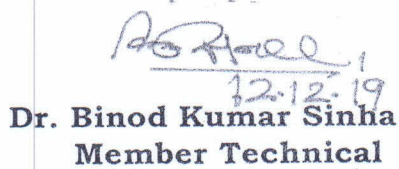 12.12.19
Dr. Binod Kumar Sinha
Member Technical